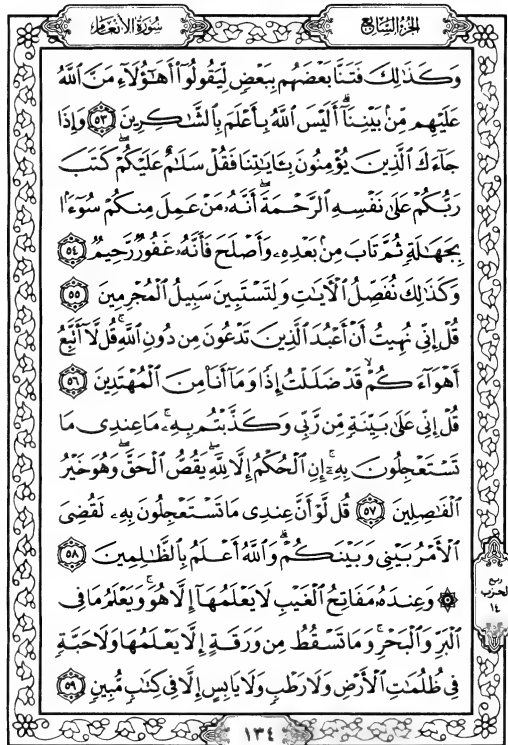 سُورَةُ الأَنْعَامِ
الجُزْءُ السَّابِعُ
وَكَذَٰلِكَ فَتَنَّا بَعْضَهُم بِبَعْضٍ لِّيَقُولُوٓا۟ أَهَٰٓؤُلَآءِ مَنَّ ٱللَّهُ
عَلَيْهِم مِّنۢ بَيْنِنَآ ۗ أَلَيْسَ ٱللَّهُ بِأَعْلَمَ بِٱلشَّٰكِرِينَ ٥٣ وَإِذَا
جَآءَكَ ٱلَّذِينَ يُؤْمِنُونَ بِـَٔايَٰتِنَا فَقُلْ سَلَٰمٌ عَلَيْكُمْ ۖ كَتَبَ
رَبُّكُمْ عَلَىٰ نَفْسِهِ ٱلرَّحْمَةَ ۖ أَنَّهُۥ مَنْ عَمِلَ مِنكُمْ سُوٓءًۢا
بِجَهَٰلَةٍ ثُمَّ تَابَ مِنۢ بَعْدِهِۦ وَأَصْلَحَ فَأَنَّهُۥ غَفُورٌ رَّحِيمٌ ٥٤
وَكَذَٰلِكَ نُفَصِّلُ ٱلْءَايَٰتِ وَلِتَسْتَبِينَ سَبِيلُ ٱلْمُجْرِمِينَ ٥٥
قُلْ إِنِّى نُهِيتُ أَنْ أَعْبُدَ ٱلَّذِينَ تَدْعُونَ مِن دُونِ ٱللَّهِ ۚ قُل لَّآ أَتَّبِعُ
أَهْوَآءَكُمْ ۙ قَدْ ضَلَلْتُ إِذًا وَمَآ أَنَا۠ مِنَ ٱلْمُهْتَدِينَ ٥٦
قُلْ إِنِّى عَلَىٰ بَيِّنَةٍ مِّن رَّبِّى وَكَذَّبْتُم بِهِۦ ۚ مَا عِندِى مَا
تَسْتَعْجِلُونَ بِهِۦٓ ۚ إِنِ ٱلْحُكْمُ إِلَّا لِلَّهِ ۖ يَقُصُّ ٱلْحَقَّ ۖ وَهُوَ خَيْرُ
ٱلْفَٰصِلِينَ ٥٧ قُل لَّوْ أَنَّ عِندِى مَا تَسْتَعْجِلُونَ بِهِۦ لَقُضِىَ
ٱلْأَمْرُ بَيْنِى وَبَيْنَكُمْ ۗ وَٱللَّهُ أَعْلَمُ بِٱلظَّٰلِمِينَ ٥٨
۞ وَعِندَهُۥ مَفَاتِحُ ٱلْغَيْبِ لَا يَعْلَمُهَآ إِلَّا هُوَ ۚ وَيَعْلَمُ مَا فِى
ٱلْبَرِّ وَٱلْبَحْرِ ۚ وَمَا تَسْقُطُ مِن وَرَقَةٍ إِلَّا يَعْلَمُهَا وَلَا حَبَّةٍ
فِى ظُلُمَٰتِ ٱلْأَرْضِ وَلَا رَطْبٍ وَلَا يَابِسٍ إِلَّا فِى كِتَٰبٍ مُّبِينٍ ٥٩
ربع
الحزب
١٤
١٣٤